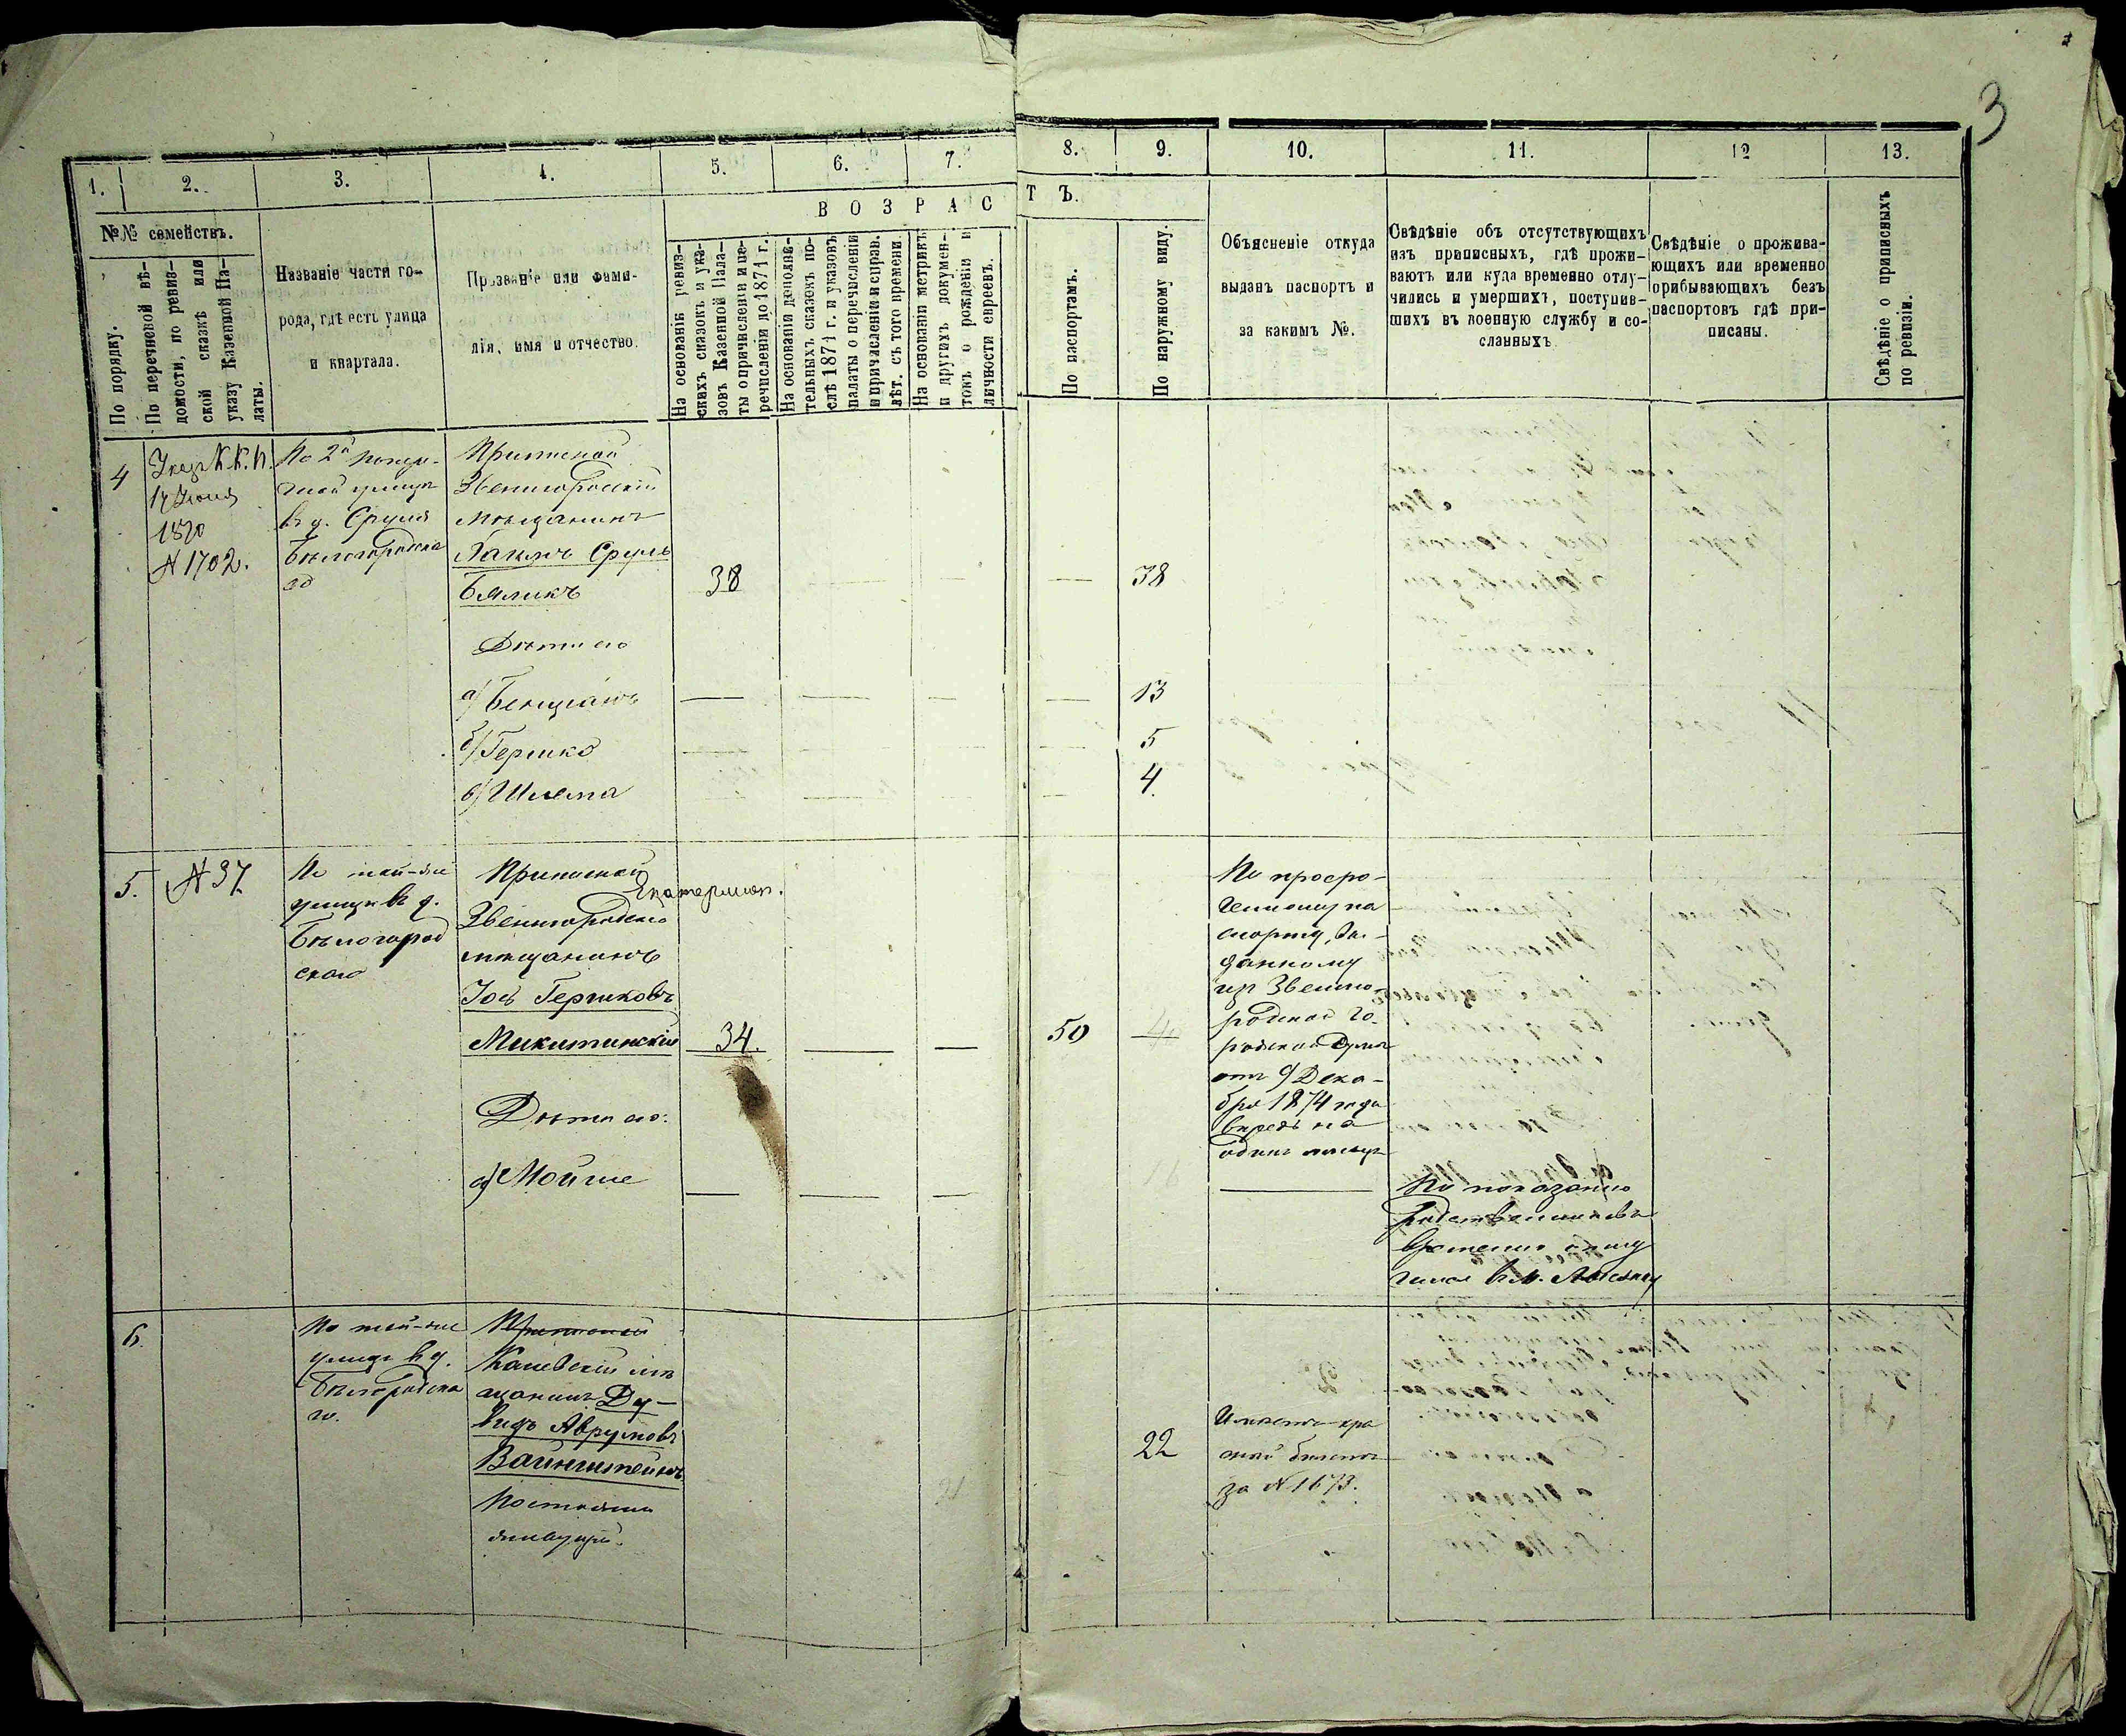 3
1.
2.
3.
4.
5.
6.
7.
8.
9.
10.
11.
12
13.
№№ семействъ.
По порядку.
По перечневой вѣ-
домости, по ревиз-
ской сказкѣ или
указу Казенной Па-
латы.
Названіе части го-
рода, гдѣ есть улица
и квартала.
Прозваніе или фами-
лія, имя и отчество.
ВОЗРАС
ТЪ.
На основаніи ревиз-
скихъ сказокъ и ука-
зовъ Казенной Пала-
ты о причисленіи и пе-
речисленіи до 1871 г.
На основаніи дополни-
тельныхъ сказокъ по-
слѣ 1871 г. и указовъ
палаты о перечисленіи
и причисленіи и справ.
лѣт. съ того времени.
На основаніи метрикъ
и другихъ докумен-
товъ о рожденіи и
личности евреевъ.
По паспортамъ.
По наружному виду.
Объясненіе откуда
выданъ паспортъ и
за какимъ №.
Свѣдѣніе объ отсутствующихъ
изъ приписныхъ, гдѣ прожи-
ваютъ или куда временно отлу-
чились и умершихъ, поступив-
шихъ въ военную службу и со-
сланныхъ
Свѣдѣніе о прожива-
ющихъ или временно
прибывающихъ безъ
паспортовъ гдѣ при-
писаны.
Свѣдѣніе о приписныхъ
по ревизіи.
4
Указ К. К. П.
17 Іюня
1870
N 1702.
По 2й
улицѣ
въ д. Сруля
Бѣлогородска
го
Приписной
Звенигородскій
мѣщанинъ
Сруль
Бяликъ
38
38
Дѣти его
а) Бенціанъ
13
б) Гершко
5
в) Шлема
4.
5.
N 37
По той-же
улицѣ въ д.
Бѣлогород
скаго
Приписной
Екатериноп.
Звенигородскаго
мѣщанинъ
Іось Гершковъ
Микитинскій
34.
50
По просро-
ченному па
спорту, вы-
данному
изъ Звениго-
родской Го-
родской Думы
отъ 9 Дека-
бря 1874 года
впредь на
одинъ мѣсяцъ
Дѣти его:
а) Мойше
По показанію
родственниковъ
временно отлу
чился въ м. Лысянку
6.
По той-же
улицѣ въ д.
Бѣлогородска
го.
Приписной
Каневскій мѣ
щанинъ Ду-
видъ Аврумовъ
Вайнштейнъ
постоянно
живущій.
21
22
Имѣетъ кра
сный билетъ
за N 1673.